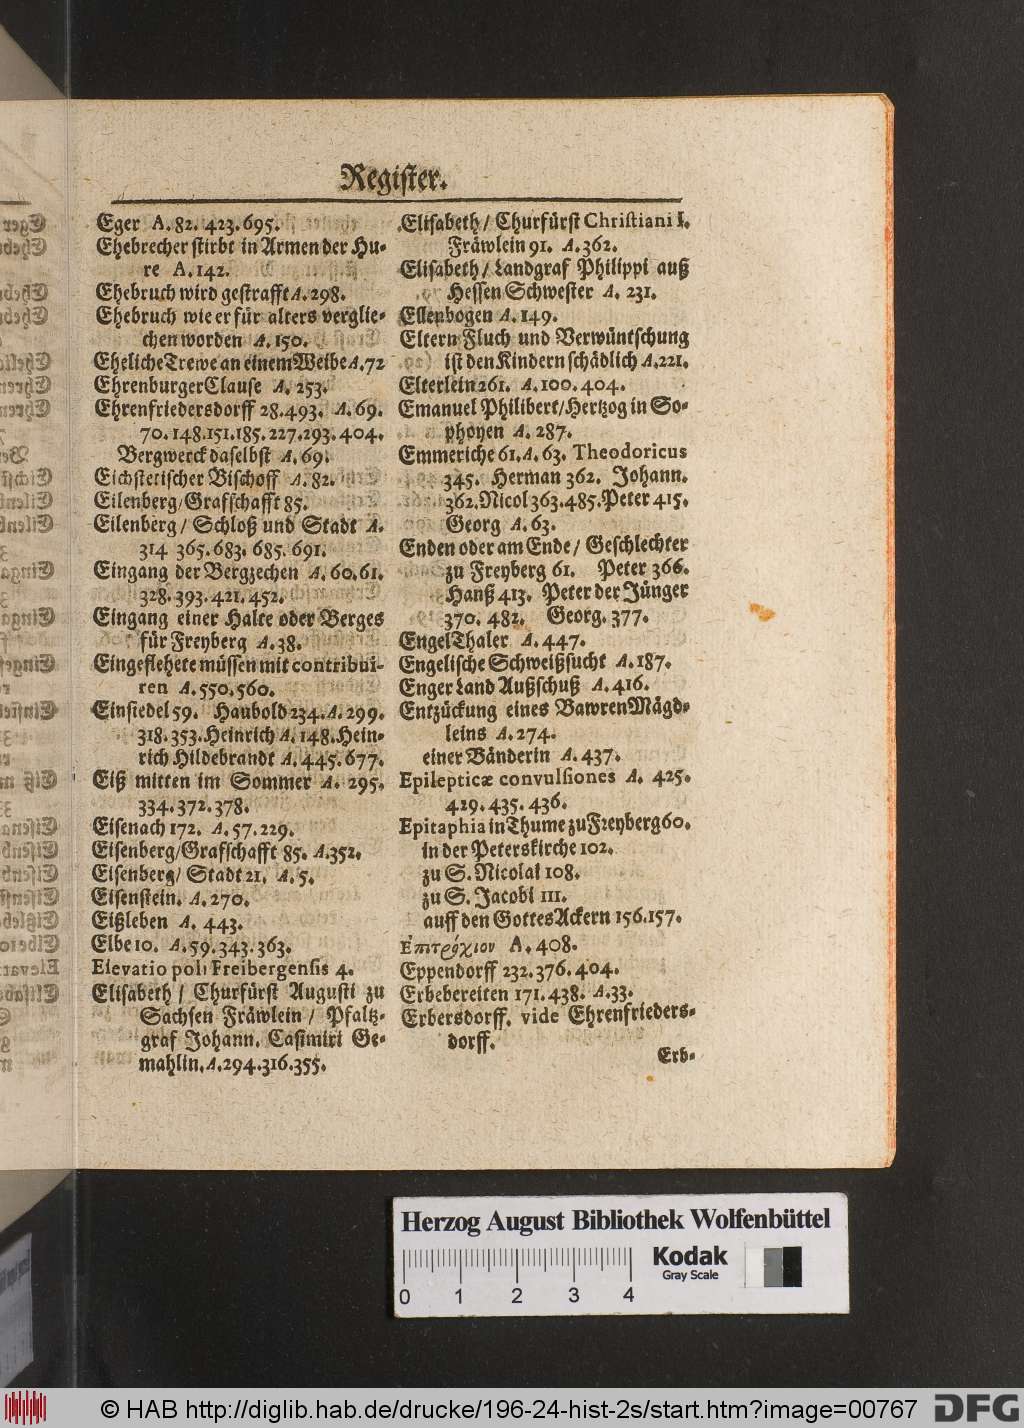 Register.
Eger A. 82. 423. 695.
Ehebrecher stirbt in Armen der Hu-
re A. 142.
Ehebruch wird gestrafft A. 298.
Ehebruch wie er für alters verglie-
chen worden A. 150.
Eheliche Trewe an einem Weibe A. 72
Ehrenburger Clause A. 253.
Ehrenfriedersdorff 28. 493. A. 69.
70. 148. 151. 185. 227. 293. 404.
Bergwerck daselbst A. 69.
Eichstetischer Bischoff A. 82.
Eilenberg/ Grafschafft 85.
Eilenberg/ Schloß und Stadt A.
314 365. 683. 685. 691.
Eingang der Bergzechen A. 60. 61.
328. 393. 421. 452.
Eingang einer Halte oder Berges
für Freyberg A. 38.
Eingeflehete müssen mit contribui-
ren A. 550. 560.
Einsiedel 59. Haubold 234. A. 299.
318. 353. Heinrich A. 148. Hein-
rich Hildebrandt A. 445. 677.
Eiß mitten im Sommer A. 295.
334. 372. 378.
Eisenach 172. A. 57. 229.
Eisenberg/ Grafschafft 85. A. 352.
Eisenberg/ Stadt 21. A. 5.
Eisenstein. A. 270.
Eißleben A. 443.
Elbe 10. A. 59. 343. 363.
Elevatio poli Freibergensis 4.
Elisabeth / Churfürst Augusti zu
Sachsen Fräwlein / Pfaltz-
graf Johann. Casimiri Ge-
mahlin. A. 294. 316. 355.
Elisabeth / Churfürst Christiani I.
Fräwlein 91. A. 362.
Elisabeth / Landgraf Philippi auß
Hessen Schwester A. 231.
Ellenbogen A. 149.
Eltern Fluch und Verwüntschung
ist den Kindern schädlich A. 221.
Elterlein 261. A. 100. 404.
Emanuel Philibert/ Hertzog in So-
phoyen A. 287.
Emmeriche 61. A. 63. Theodoricus
345. Herman 362. Johann.
362. Nicol 363. 485. Peter 415.
Georg A. 63.
Enden oder am Ende / Geschlechter
zu Freyberg 61. Peter 366.
Hanß 413. Peter der Jünger
370. 482. Georg. 377.
Engel Thaler A. 447.
Engelische Schweißsucht A. 187.
Enger Land Außschuß A. 416.
Entzückung eines Bawren Mägd-
leins A. 274.
einer Bänderin A. 437.
Epilepticæ convulsiones A. 425.
429. 435. 436.
Epitaphia in Thume zu Freyberg 60.
in der Peterskirche 102.
zu S. Nicolai 108.
zu S. Jacobi 111.
auff den Gottes Ackern 156. 157.
Ἐπιτρόχιον A. 408.
Eppendorff 232. 376. 404.
Erbebereiten 171. 438. A. 33.
Erbersdorff. vide Ehrenfrieders-
dorff.
Erb-
Herzog August Bibliothek Wolfenbüttel
0 1 2 3 4
Kodak
Gray Scale
© HAB http://diglib.hab.de/drucke/196-24-hist-2s/start.htm?image=00767
DFG